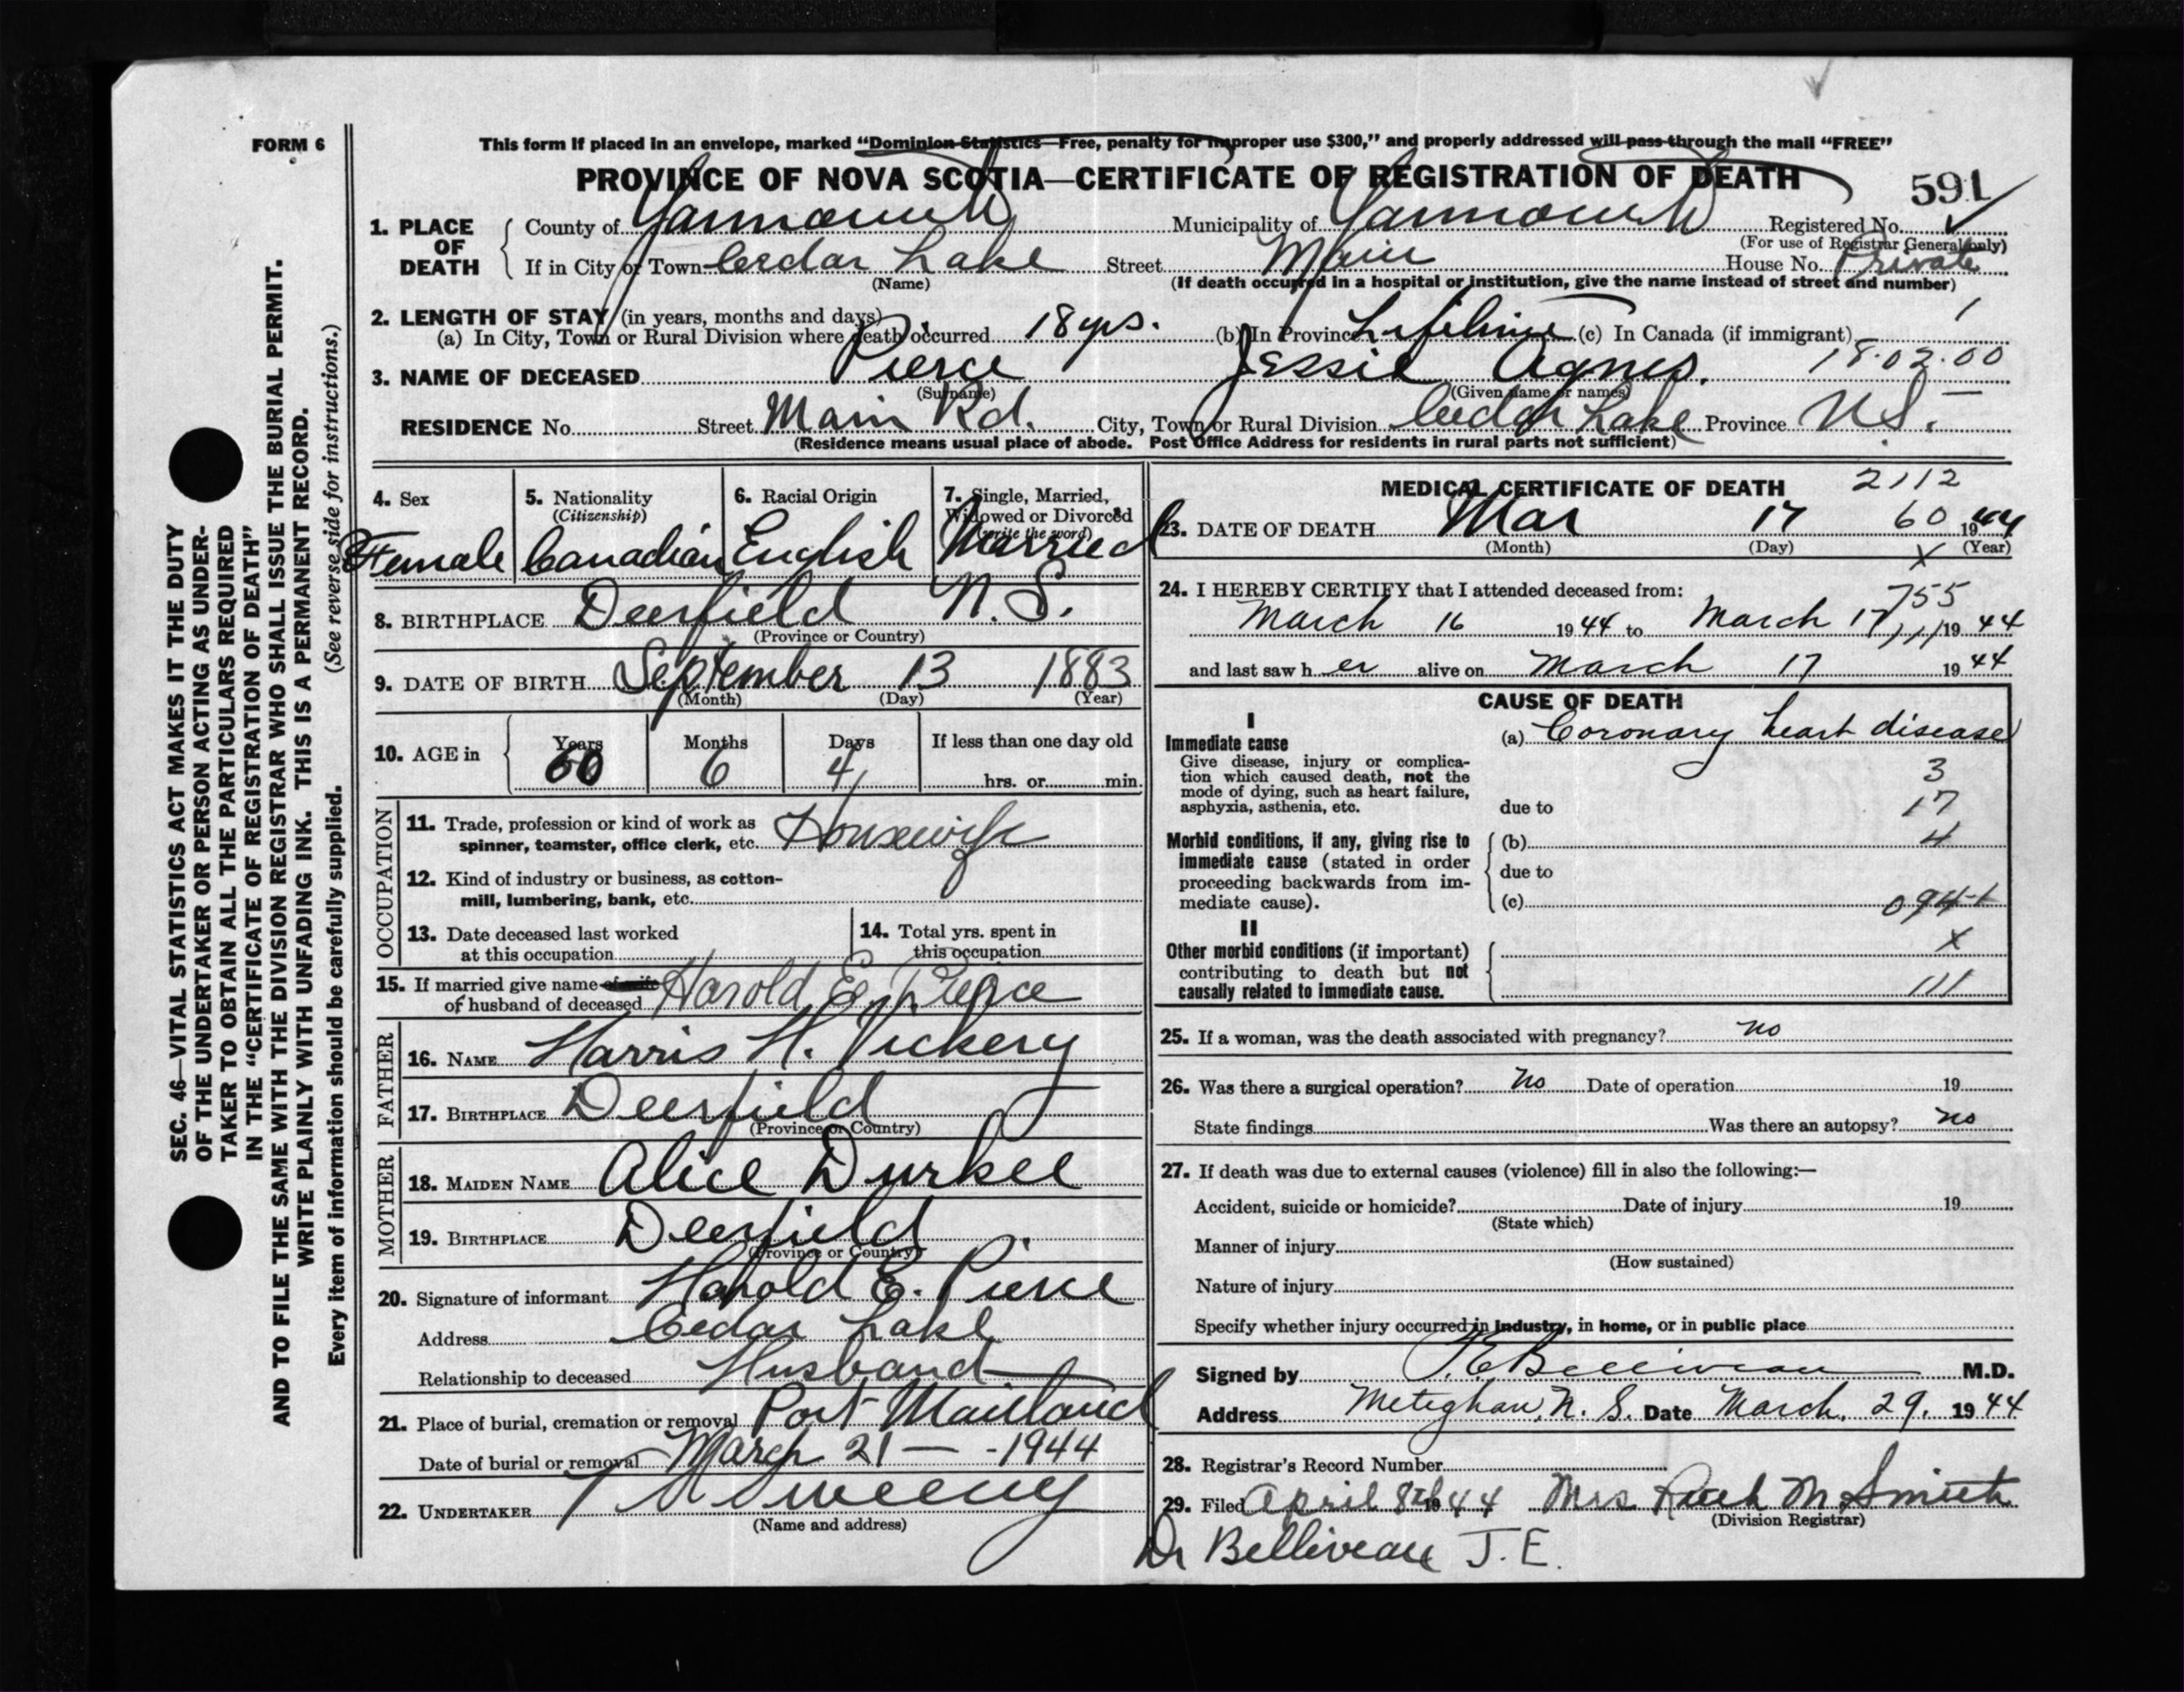 FORM 6
This form if placed in an envelope, marked "Dominion Statistics—Free, penalty for improper use $300," and properly addressed will pass through the mail "FREE"
PROVINCE OF NOVA SCOTIA—CERTIFICATE OF REGISTRATION OF DEATH
591
1. PLACE OF DEATH
County of Yarmouth Municipality of Yarmouth Registered No.
(For use of Registrar General only)
If in City or Town Cedar Lake Street Main House No. Private
(Name) (If death occurred in a hospital or institution, give the name instead of street and number)
2. LENGTH OF STAY (in years, months and days)
(a) In City, Town or Rural Division where death occurred 18 yrs. (b) In Province Lifetime (c) In Canada (if immigrant)
3. NAME OF DECEASED Pierce Jessie Agnes. 18.02.00
(Surname) (Given name or names)
RESIDENCE No. Street Main Rd. City, Town or Rural Division Cedar Lake Province N.S.
(Residence means usual place of abode. Post Office Address for residents in rural parts not sufficient)
4. Sex
Female
5. Nationality
(Citizenship)
Canadian
6. Racial Origin
English
7. Single, Married,
Widowed or Divorced
(write the word)
Married
8. BIRTHPLACE Deerfield N.S.
(Province or Country)
9. DATE OF BIRTH September 13 1883
(Month) (Day) (Year)
10. AGE in
Years Months Days If less than one day old
60 6 4 hrs. or min.
OCCUPATION
11. Trade, profession or kind of work as
spinner, teamster, office clerk, etc. Housewife
12. Kind of industry or business, as cotton-
mill, lumbering, bank, etc.
13. Date deceased last worked
at this occupation
14. Total yrs. spent in
this occupation
15. If married give name of wife
of husband of deceased Harold E. Pierce
FATHER
16. NAME Harris H. Vickery
17. BIRTHPLACE Deerfield
(Province or Country)
MOTHER
18. MAIDEN NAME Alice Durkee
19. BIRTHPLACE Deerfield
(Province or Country)
20. Signature of informant Harold E. Pierce
Address Cedar Lake
Relationship to deceased Husband
21. Place of burial, cremation or removal Port Maitland
Date of burial or removal March 21 — -1944
22. UNDERTAKER Sweeny
(Name and address)
MEDICAL CERTIFICATE OF DEATH 2112
23. DATE OF DEATH Mar 17 60 1944
(Month) (Day) X (Year)
24. I HEREBY CERTIFY that I attended deceased from: 755
March 16 1944 to March 17 1944
and last saw her alive on March 17 1944
CAUSE OF DEATH
I
Immediate cause
Give disease, injury or complica-
tion which caused death, not the
mode of dying, such as heart failure,
asphyxia, asthenia, etc.
(a) Coronary heart disease
3
due to 17
Morbid conditions, if any, giving rise to
immediate cause (stated in order
proceeding backwards from im-
mediate cause).
(b) 4
due to
(c) 094-1
II
Other morbid conditions (if important)
contributing to death but not
causally related to immediate cause.
X
111
25. If a woman, was the death associated with pregnancy? no
26. Was there a surgical operation? No Date of operation 19
State findings Was there an autopsy? no
27. If death was due to external causes (violence) fill in also the following:—
Accident, suicide or homicide? Date of injury 19
(State which)
Manner of injury
(How sustained)
Nature of injury
Specify whether injury occurred in industry, in home, or in public place
Signed by J. E. Belliveau M.D.
Address Meteghan, N. S. Date March, 29, 1944
28. Registrar's Record Number
29. Filed April 8th 1944 Mrs Ruth M Smith
(Division Registrar)
Dr Belliveau J.E.
SEC. 46—VITAL STATISTICS ACT MAKES IT THE DUTY
OF THE UNDERTAKER OR PERSON ACTING AS UNDER-
TAKER TO OBTAIN ALL THE PARTICULARS REQUIRED
IN THE "CERTIFICATE OF REGISTRATION OF DEATH"
AND TO FILE THE SAME WITH THE DIVISION REGISTRAR WHO SHALL ISSUE THE BURIAL PERMIT.
WRITE PLAINLY WITH UNFADING INK. THIS IS A PERMANENT RECORD.
Every item of information should be carefully supplied. (See reverse side for instructions.)